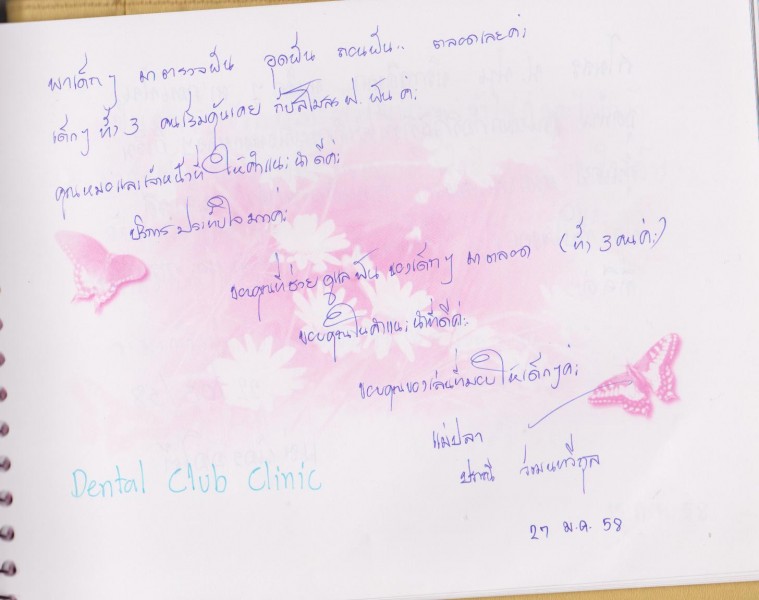 พาเด็กๆ มาตรวจฟัน อุดฟัน ถอนฟัน.. ตลอดเลยค่ะ
เด็กๆ ทั้ง 3 คนเริ่มคุ้นเคย กับสโมสร ฟ. ฟัน ค่ะ
คุณหมอและเจ้าหน้าที่ ให้คำแนะนำดีค่ะ
บริการประทับใจมากค่ะ
ขอบคุณที่ช่วยดูแลฟันของเด็กๆ มาตลอด (ทั้ง 3 คนค่ะ)
ขอบคุณในคำแนะนำที่ดีค่ะ
ขอบคุณของเล่นที่มอบให้เด็กๆค่ะ
แม่ปลา
27 ม.ค. 58
Dental Club Clinic